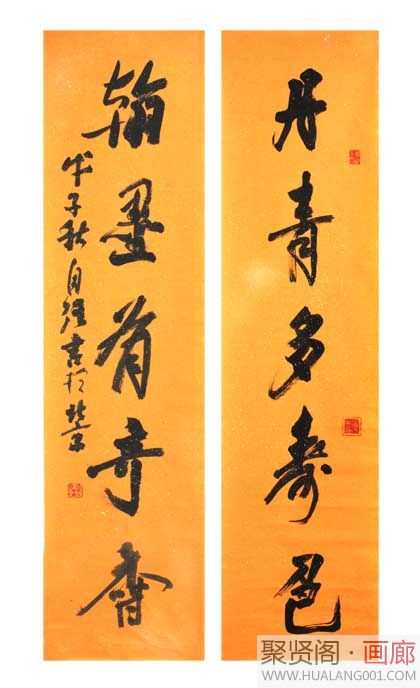 丹青多壽色
翰墨有奇香
戊子秋自强書於北京
聚贤阁·画廊
WWW.HUALANG001.COM